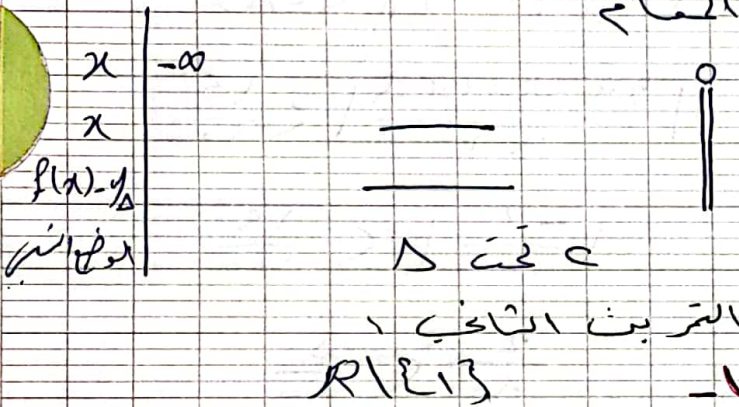 x -∞ 0
x —
f(x)-y_Δ —
الوضع النسبي C تحت Δ
التمرين الثاني
R\{1}